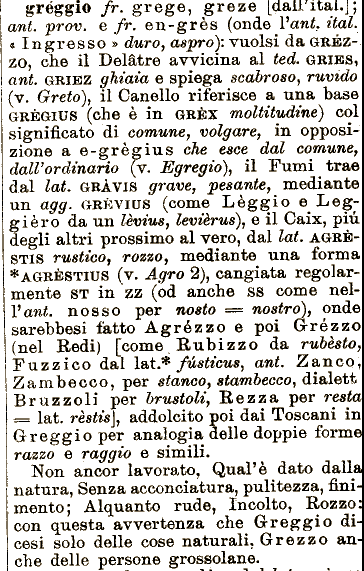 gréggio fr. grege, greze [dall'ital.];
ant. prov. e fr. en-grès (onde l'ant. ital.
« Ingresso » duro, aspro): vuolsi da GRÉZ-
ZO, che il Delâtre avvicina al ted. GRIES,
ant. GRIEZ ghiaia e spiega scabroso, ruvido
(v. Greto), il Canello riferisce a una base
GRĒGIUS (che è in GRĒX moltitudine) col
significato di comune, volgare, in opposi-
zione a e-grègius che esce dal comune,
dall'ordinario (v. Egregio), il Fumi trae
dal lat. GRÀVIS grave, pesante, mediante
un agg. GRÈVIUS (come Lèggio e Leg-
gièro da un lèvius, levièrus), e il Caix, più
degli altri prossimo al vero, dal lat. AGRÈ-
STIS rustico, rozzo, mediante una forma
*AGRÈSTIUS (v. Agro 2), cangiata regolar-
mente ST in ZZ (od anche SS come nel-
l'ant. nosso per nosto = nostro), onde
sarebbesi fatto Agrézzo e poi Grézzo
(nel Redi) [come Rubizzo da rubèsto,
Fuzzico dal lat.* fústicus, ant. Zanco,
Zambecco, per stanco, stambecco, dialett.
Bruzzoli per brustoli, Rezza per resta
= lat. rèstis], addolcito poi dai Toscani in
Greggio per analogia delle doppie forme
razzo e raggio e simili.
Non ancor lavorato, Qual'è dato dalla
natura, Senza acconciatura, pulitezza, fini-
mento; Alquanto rude, Incolto, Rozzo:
con questa avvertenza che Greggio di-
cesi solo delle cose naturali, Grezzo an-
che delle persone grossolane.